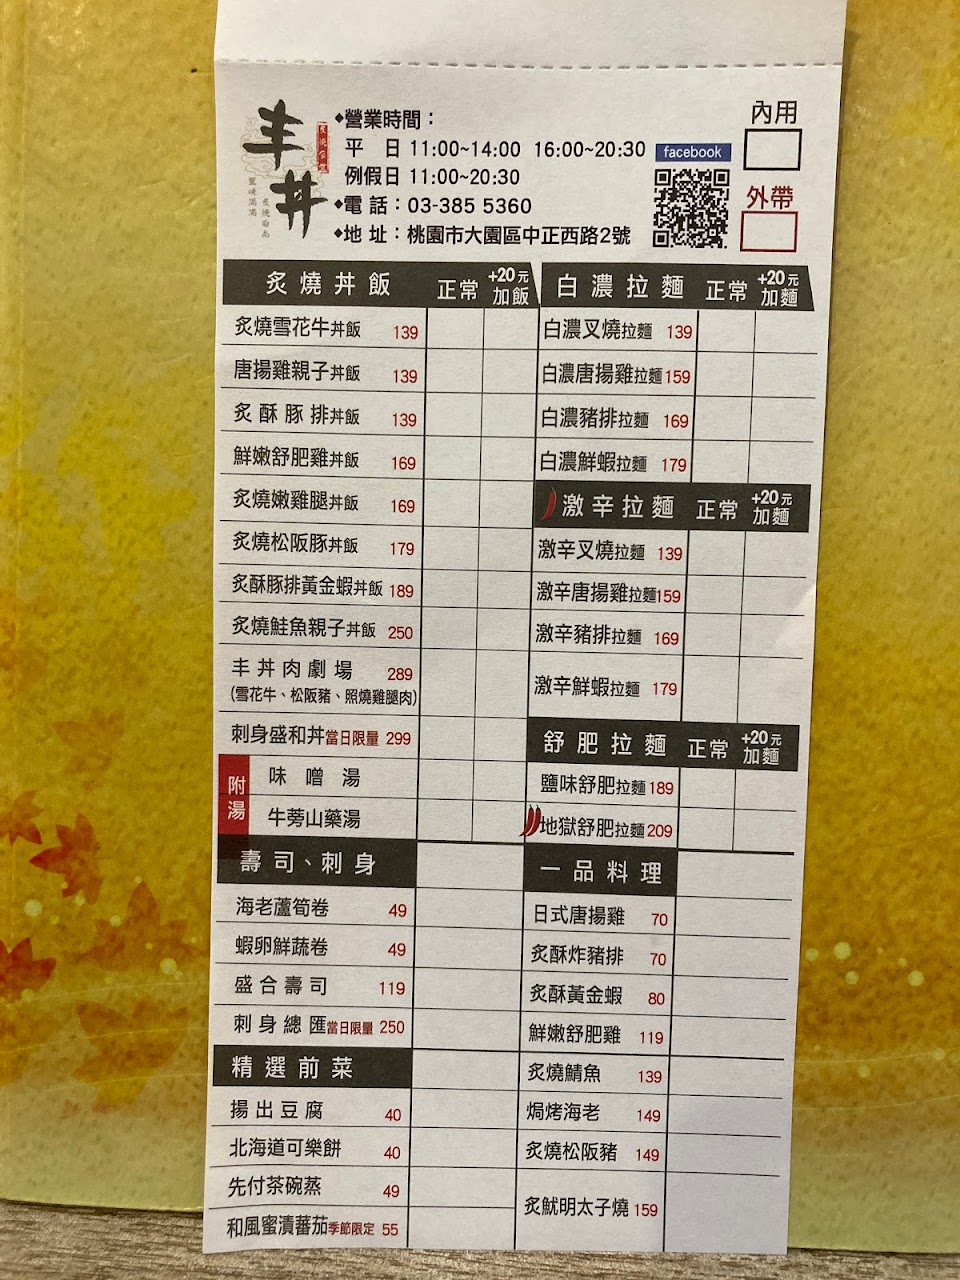 丰丼
炙燒家丼
◆營業時間：
平 日 11:00~14:00 16:00~20:30
例假日 11:00~20:30
◆電話：03-385 5360
◆地址：桃園市大園區中正西路2號
facebook
內用
外帶
炙燒丼飯 正常 +20元加飯
炙燒雪花牛丼飯 139
唐揚雞親子丼飯 139
炙酥豚排丼飯 139
鮮嫩舒肥雞丼飯 169
炙燒嫩雞腿丼飯 169
炙燒松阪豚丼飯 179
炙酥豚排黃金蝦丼飯 189
炙燒鮭魚親子丼飯 250
丰丼肉劇場 289
(雪花牛、松阪豬、照燒雞腿肉)
刺身盛和丼當日限量 299
附湯
味噌湯
牛蒡山藥湯
壽司、刺身
海老蘆筍卷 49
蝦卵鮮蔬卷 49
盛合壽司 119
刺身總匯當日限量 250
精選前菜
揚出豆腐 40
北海道可樂餅 40
先付茶碗蒸 49
和風蜜漬蕃茄季節限定 55
白濃拉麵 正常 +20元加麵
白濃叉燒拉麵 139
白濃唐揚雞拉麵 159
白濃豬排拉麵 169
白濃鮮蝦拉麵 179
激辛拉麵 正常 +20元加麵
激辛叉燒拉麵 139
激辛唐揚雞拉麵 159
激辛豬排拉麵 169
激辛鮮蝦拉麵 179
舒肥拉麵 正常 +20元加麵
鹽味舒肥拉麵 189
地獄舒肥拉麵 209
一品料理
日式唐揚雞 70
炙酥炸豬排 70
炙酥黃金蝦 80
鮮嫩舒肥雞 119
炙燒鯖魚 139
焗烤海老 149
炙燒松阪豬 149
炙魷明太子燒 159